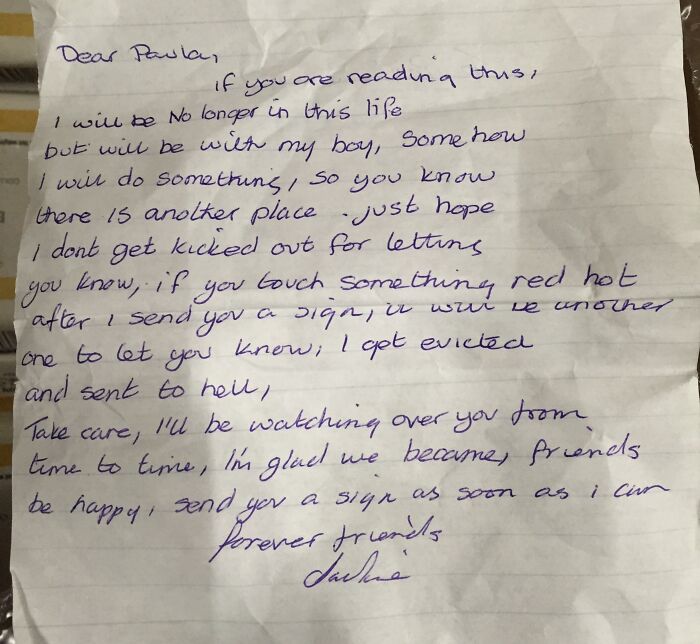 Dear Paula,
if you are reading this,
I will be No longer in this life
but will be with my boy, Somehow
I will do something, so you know
there is another place . just hope
I dont get kicked out for letting
you know, if you touch something red hot
after I send you a sign, it will be another
one to let you know, I got evicted
and sent to hell,
Take care, I'll be watching over you from
time to time, I'm glad we became, friends
be happy, send you a sign as soon as i can
forever friends
Jackie